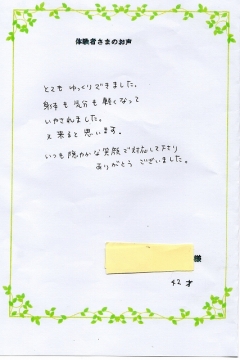 体験者さまのお声
とても ゆっくりできました。
身体も気分も軽くなって
いやされました。
又来ると思います。
いつも穏やかな笑顔で対応して下さり
ありがとう ございました。
様
42才